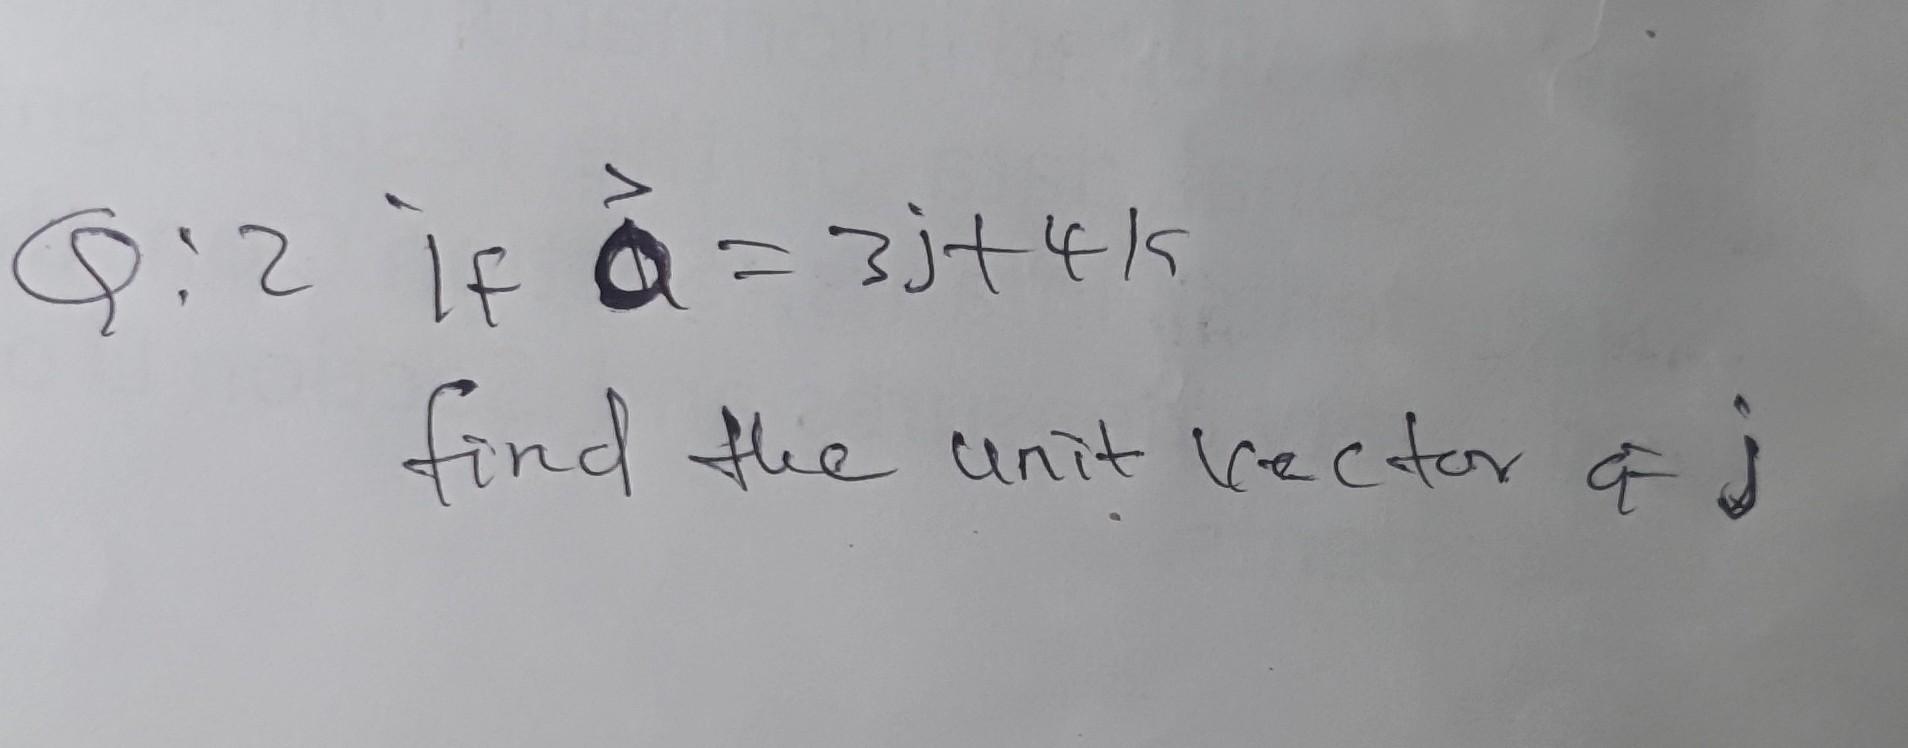 Q:2 if a⃗ = 3j+4k
find the unit vector of j